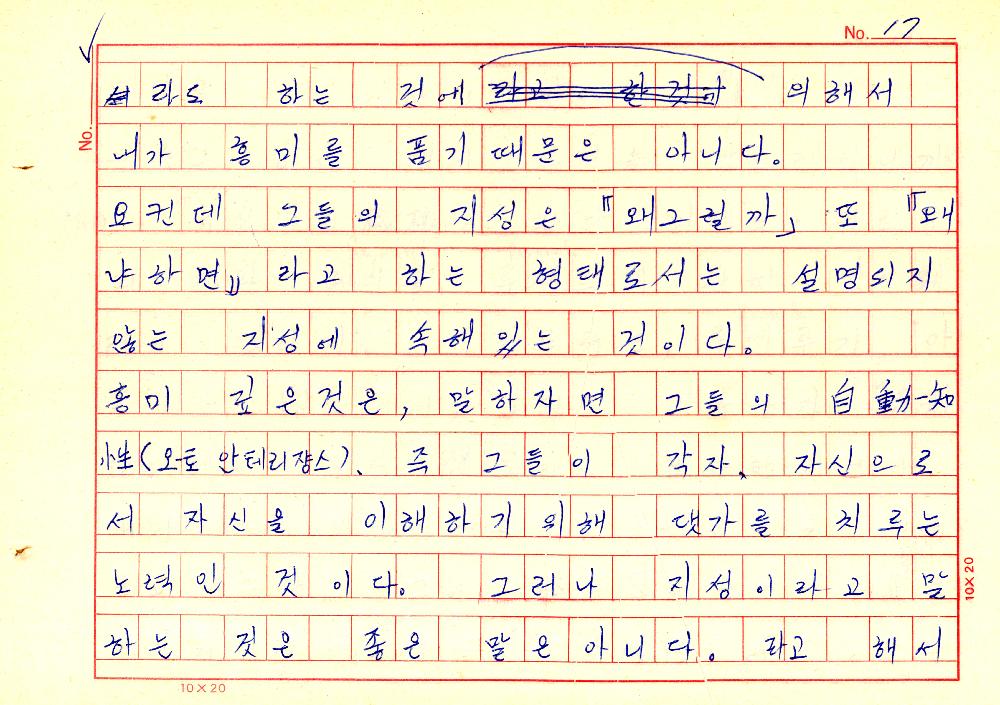 No. 17
No.
라도 하는 것에 의해서
내가 흥미를 품기 때문은 아니다.
요컨데 그들의 지성은 『왜그럴까」 또 『왜
냐하면』 라고 하는 형태로서는 설명되지
않는 지성에 속해있는 것이다.
흥미 깊은것은, 말하자면 그들의 自動-知
性(오토 안테리쟝스). 즉 그들이 각자, 자신으로
서 자신을 이해하기 위해 댓가를 치루는
노력인 것이다. 그러나 지성이라고 말
하는 것은 좋은 말은 아니다. 라고 해서
10×20
10×20